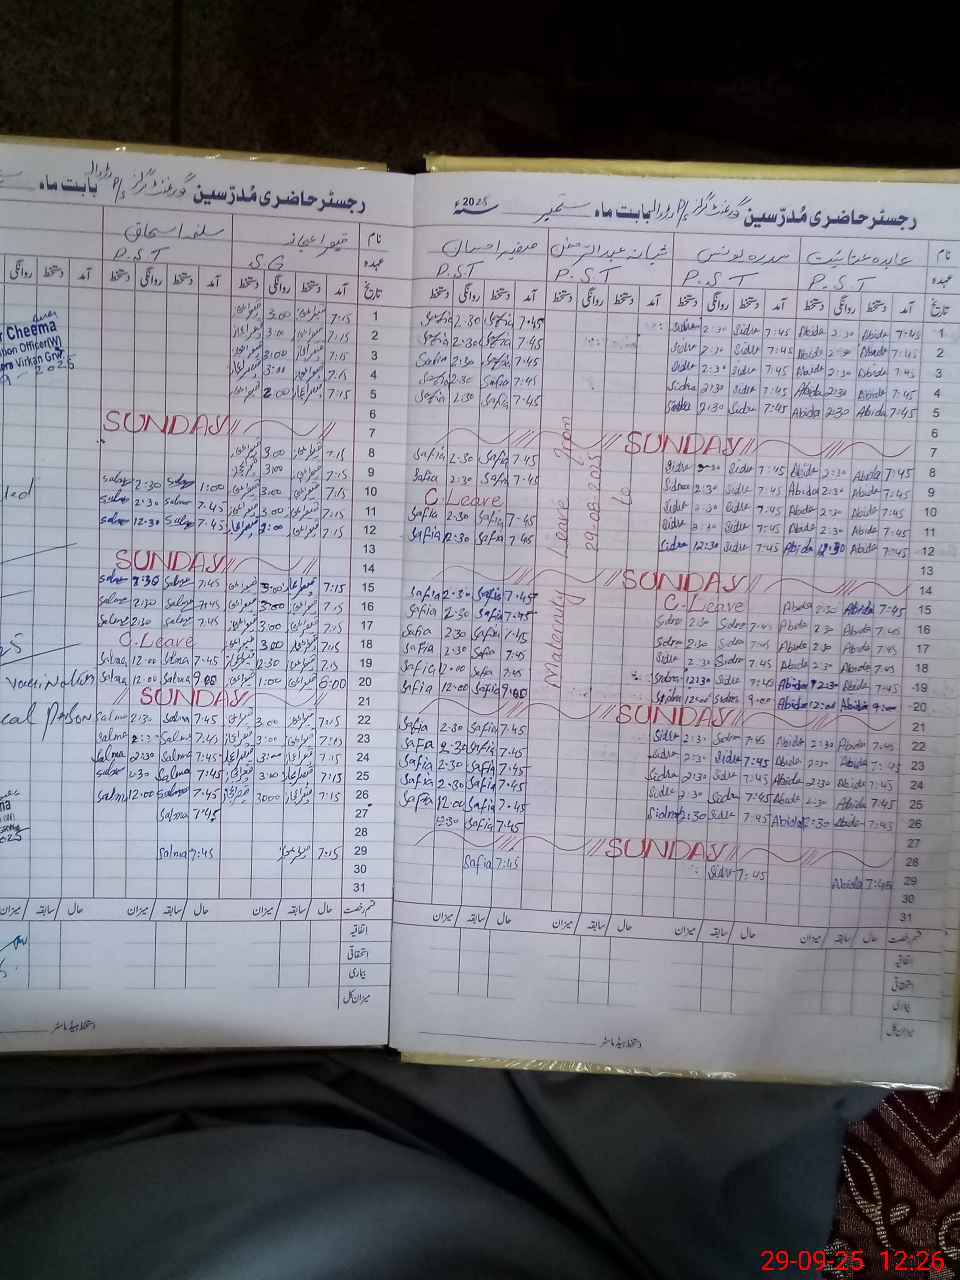 رجسٹر حاضری مُدرّسین گورنمنٹ گرلز P/S بابت ماہ ستمبر سنہ 2025ء
نام عابدہ عنایت سدرہ یونس شبانہ عبدالرحمن
عہدہ P.S.T P.S.T P.S.T P.S.T
تاریخ آمد دستخط روانگی دستخط آمد دستخط روانگی دستخط آمد دستخط روانگی دستخط آمد دستخط روانگی دستخط
1 7:45 Abida 2:30 Abida 7:45 Sidra 2:30 Sidra 7:45 Safia 2:30 Safia
2 7:45 Abida 2:30 Abida 7:45 Sidra 2:30 Sidra 7:45 Safia 2:30 Safia
3 7:45 Abida 2:30 Abida 7:45 Sidra 2:30 Sidra 7:45 Safia 2:30 Safia
4 7:45 Abida 2:30 Abida 7:45 Sidra 2:30 Sidra 7:45 Safia 2:30 Safia
5 7:45 Abida 2:30 Abida 7:45 Sidra 2:30 Sidra 7:45 Safia 2:30 Safia
6
7 SUNDAY
8 7:45 Abida 2:30 Abida 7:45 Sidra 2:30 Sidra 7:45 Safia 2:30 Safia
9 7:45 Abida 2:30 Abida 7:45 Sidra 2:30 Sidra 7:45 Safia 2:30 Safia
10 7:45 Abida 2:30 Abida 7:45 Sidra 2:30 Sidra C.Leave
11 7:45 Abida 2:30 Abida 7:45 Sidra 2:30 Sidra 7:45 Safia 2:30 Safia
12 7:45 Abida 12:30 Abida 7:45 Sidra 12:30 Sidra 7:45 Safia 12:30 Safia
13
14 SUNDAY
15 7:45 Abida 2:30 Abida C.Leave 7:45 Safia 2:30 Safia
16 7:45 Abida 2:30 Abida 7:45 Sidra 2:30 Sidra 7:45 Safia 2:30 Safia
17 7:45 Abida 2:30 Abida 7:45 Sidra 2:30 Sidra 7:45 Safia 2:30 Safia
18 7:45 Abida 2:30 Abida 7:45 Sidra 2:30 Sidra 7:45 Safia 2:30 Safia
19 7:45 Abida 12:30 Abida 7:45 Sidra 12:30 Sidra 7:45 Safia 12:00 Safia
20 9:00 Abida 12:00 Abida 9:00 Sidra 12:00 Sidra 9:00 Safia 12:00 Safia
21 SUNDAY
22 7:45 Abida 2:30 Abida 7:45 Sidra 2:30 Sidra 7:45 Safia 2:30 Safia
23 7:45 Abida 2:30 Abida 7:45 Sidra 2:30 Sidra 7:45 Safia 2:30 Safia
24 7:45 Abida 2:30 Abida 7:45 Sidra 2:30 Sidra 7:45 Safia 2:30 Safia
25 7:45 Abida 2:30 Abida 7:45 Sidra 2:30 Sidra 7:45 Safia 2:30 Safia
26 7:45 Abida 12:30 Abida 7:45 Sidra 12:30 Sidra 7:45 Safia 12:00 Safia
27 7:45 Safia 12:30
28 SUNDAY
29 7:45 Abida 7:45 Sidra 7:45 Safia
30
31
Maternity Leave from
29-08-2025
to
قسم رخصت حال سابقہ میزان حال سابقہ میزان حال سابقہ میزان حال سابقہ میزان
اتفاقیہ
استحقاقی
بیماری
میزان کل
دستخط ہیڈ ماسٹر
رجسٹر حاضری مُدرّسین گورنمنٹ گرلز P/S بابت ماہ
نام سلمہ اسحاق
عہدہ S.G P.S.T
تاریخ آمد دستخط روانگی دستخط آمد دستخط روانگی دستخط آمد دستخط روانگی
1 7:15 3:00
2 7:15 3:00
3 7:15 3:00
4 7:15 3:00
5 7:15 2:00
6
7 SUNDAY
8 7:15 3:00
9 7:15 3:00
10 7:15 3:00 1:00 Salma 2:30 Salma
11 7:15 3:00 7:45 Salma 2:30 Salma
12 7:15 7:45 Salma 12:30 Salma
13
14 SUNDAY
15 7:15 3:00 7:45 Salma 2:30 Salma
16 7:15 3:00 7:45 Salma 2:30 Salma
17 7:15 3:00 7:45 Salma 2:30 Salma
18 7:15 3:00 C.Leave
19 7:15 12:30 7:45 Salma 12:00 Salma
20 8:00 1:00 9:00 Salma 12:00 Salma
21 SUNDAY
22 7:15 3:00 7:45 Salma 2:30 Salma
23 7:15 3:00 7:45 Salma 2:30 Salma
24 7:15 3:00 7:45 Salma 2:30 Salma
25 7:15 3:00 7:45 Salma 2:30 Salma
26 7:15 7:45 Salma 12:00 Salma
27 7:45 Salma
28
29 7:15 7:45 Salma
30
31
Cheema
Officer(W)
Virkan
2025
Vaccination
Person
قسم رخصت حال سابقہ میزان حال سابقہ میزان حال سابقہ میزان
اتفاقیہ
استحقاقی
بیماری
میزان کل
دستخط ہیڈ ماسٹر
29-09-25 12:26